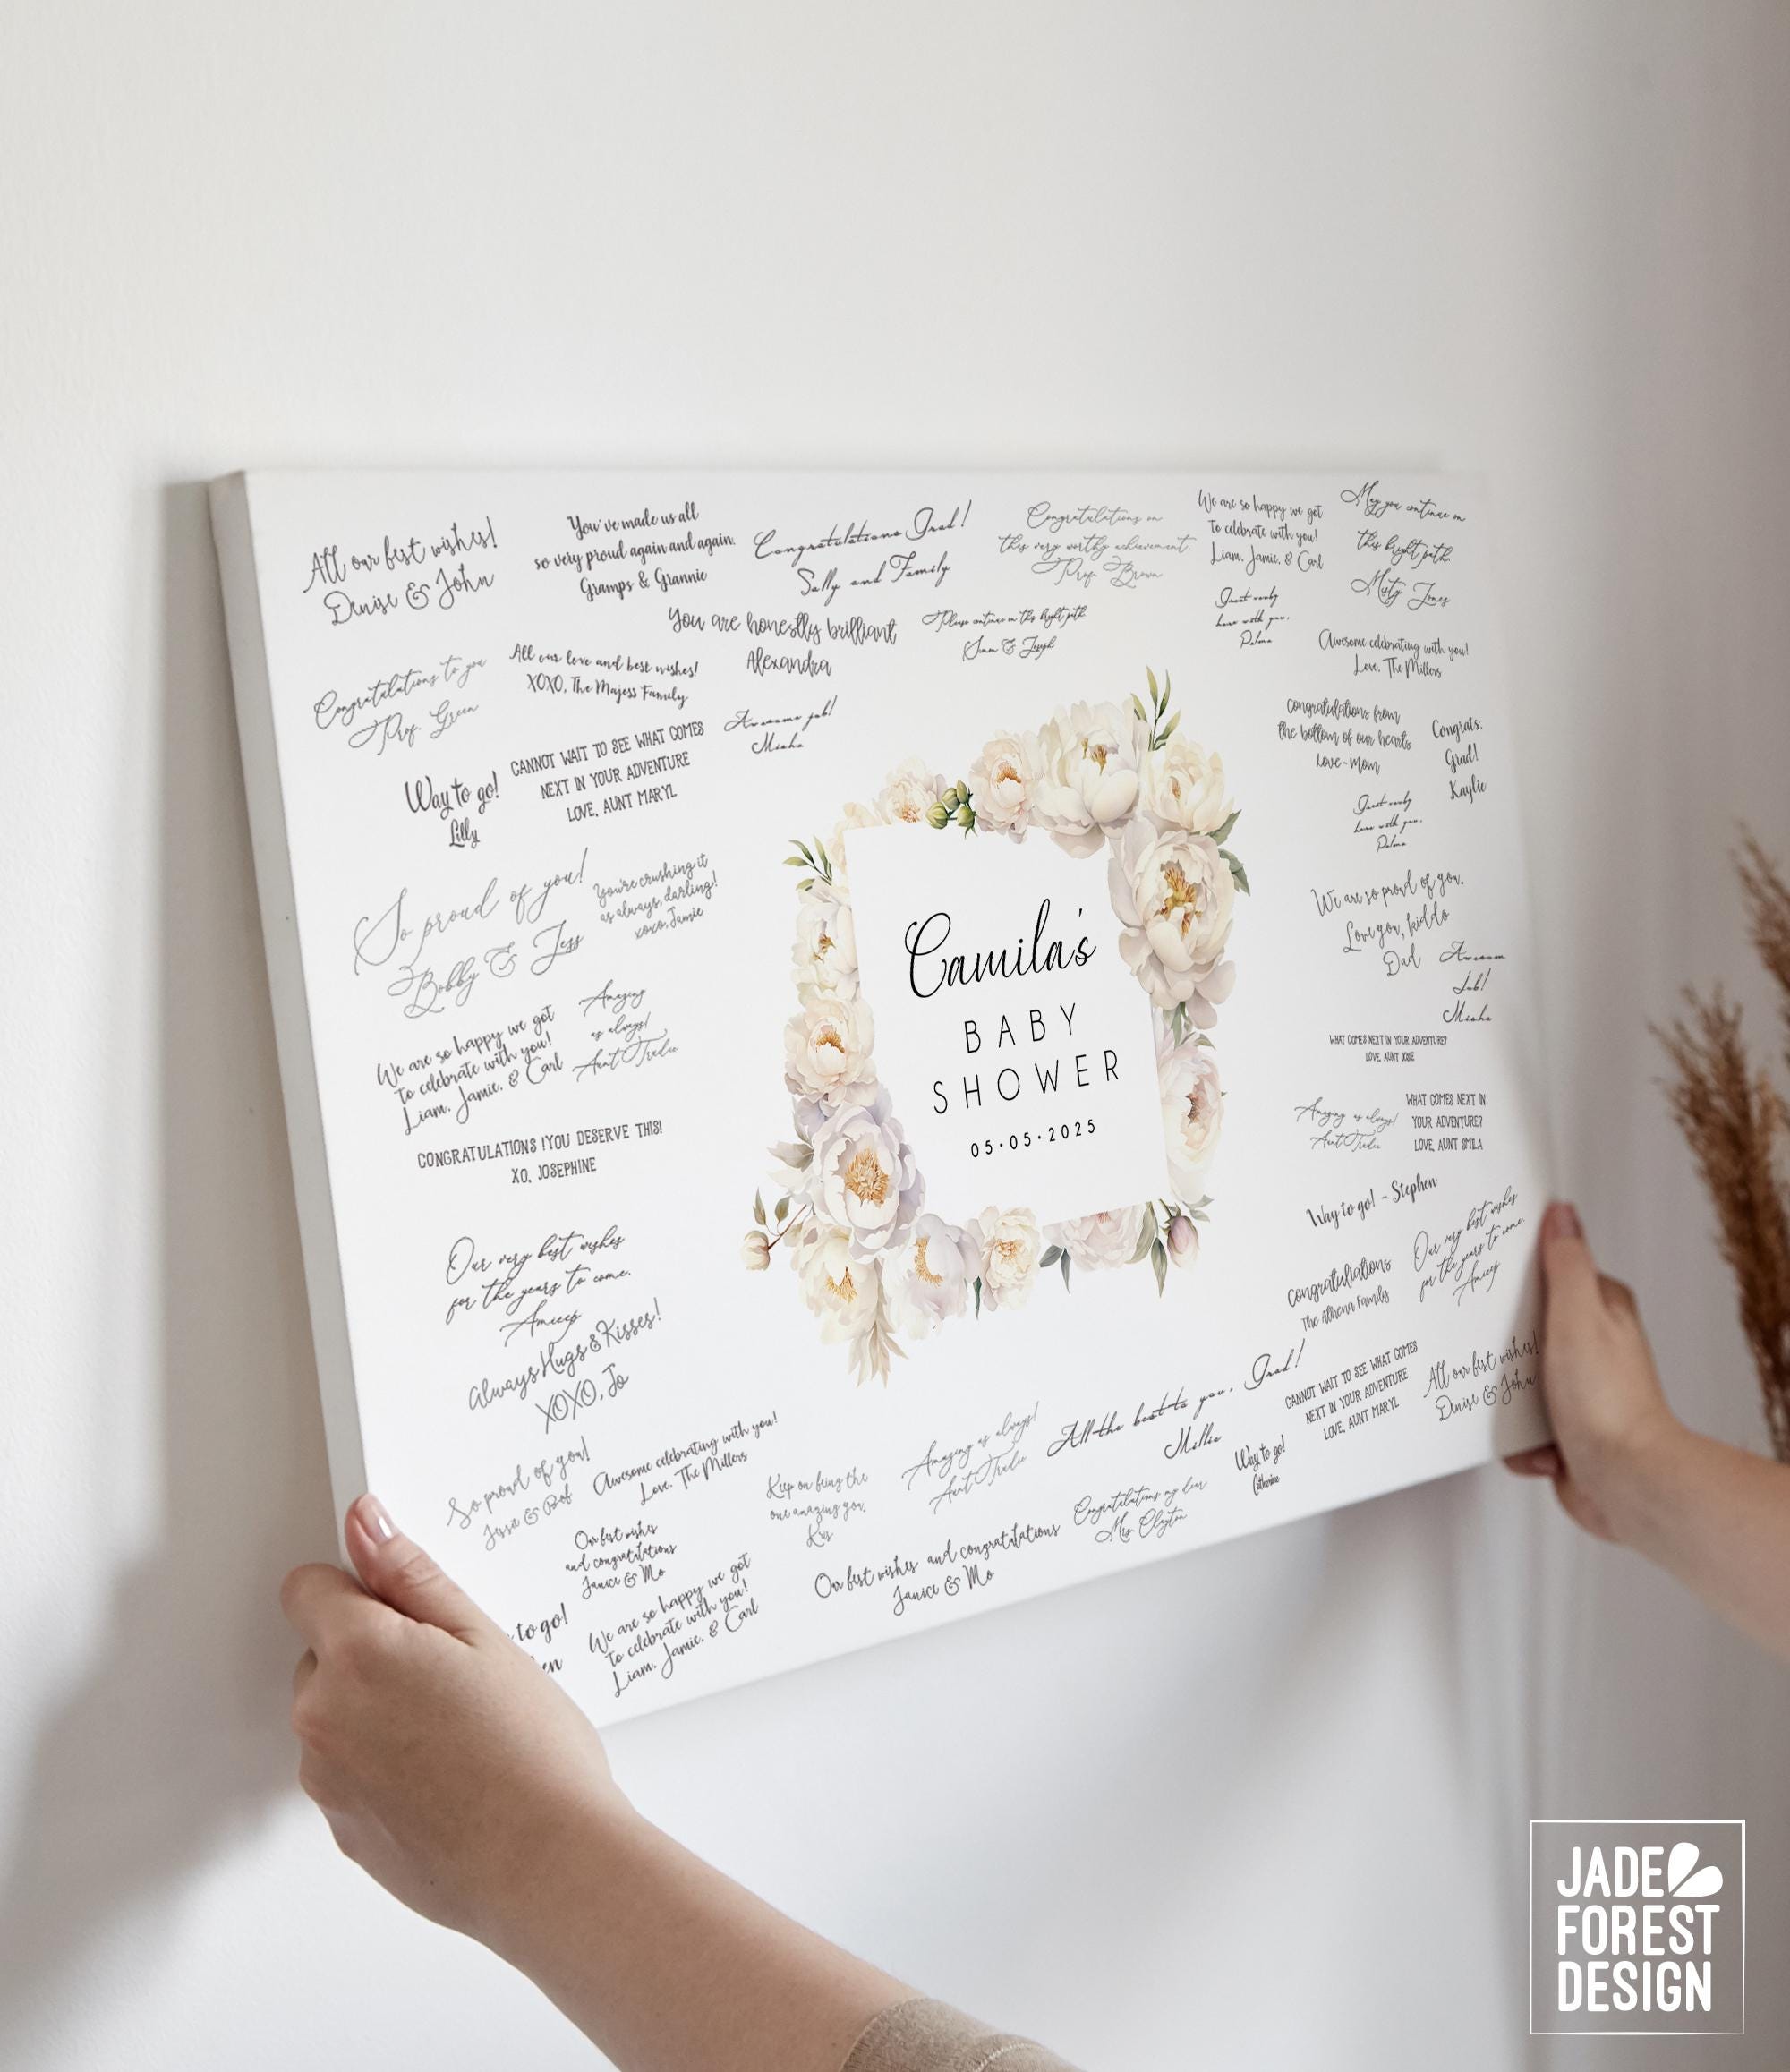 All our best wishes!
Denise & John
You've made us all
so very proud again and again.
Gramps & Grannie
Congratulations Grad!
Sally and Family
Congratulations on
this very worthy achievement.
Prof. Brown
We are so happy we got
to celebrate with you!
Liam, Jamie, & Carl
May you continue on
this bright path.
Misty Jones
You are honestly brilliant
Alexandra
Please continue on this bright path
Joseph
here with you.
Awesome celebrating with you!
Love, The Millers
Congratulations to you
Prof. Green
All our love and best wishes!
XOXO, The Majess Family
Awesome job!
Misha
CANNOT WAIT TO SEE WHAT COMES
NEXT IN YOUR ADVENTURE
LOVE, AUNT MARYL
Way to go!
Lilly
Congratulations from
the bottom of our hearts
Love-Mom
Congrats,
Grad!
Kaylie
here with you.
So proud of you!
Bobby & Jess
You're crushing it
as always, darling!
xoxo, Jamie
We are so proud of you.
Love you, kiddo
Dad
Awesome
Job!
Misha
Camila's
BABY
SHOWER
05·05·2025
We are so happy we got
to celebrate with you!
Liam, Jamie, & Carl
Amazing
as always!
Aunt Trudie
WHAT COMES NEXT IN YOUR ADVENTURE?
LOVE, AUNT JOSIE
Amazing as always!
Aunt Trudie
WHAT COMES NEXT IN
YOUR ADVENTURE?
LOVE, AUNT SMILA
CONGRATULATIONS !YOU DESERVE THIS!
XO, JOSEPHINE
Way to go! - Stephen
Our very best wishes
for the years to come.
Our very best wishes
for the years to come.
Congratulations
The Athena Family
Always Hugs & Kisses!
XOXO, Jo
CANNOT WAIT TO SEE WHAT COMES
NEXT IN YOUR ADVENTURE
LOVE, AUNT MARYL
All our best wishes!
Denise & John
All the best to you, Grad!
Millie
Way to go!
Catherine
So proud of you!
Jessa & Bob
Awesome celebrating with you!
Love, The Millers
Keep on being the
one amazing you,
Kris
Amazing as always!
Aunt Trudie
Congratulations my dear
Mrs. Clayton
Our best wishes
and congratulations
Janice & Mo
Our best wishes and congratulations
Janice & Mo
to go!
en
We are so happy we got
to celebrate with you!
Liam, Jamie, & Carl
JADE
FOREST
DESIGN